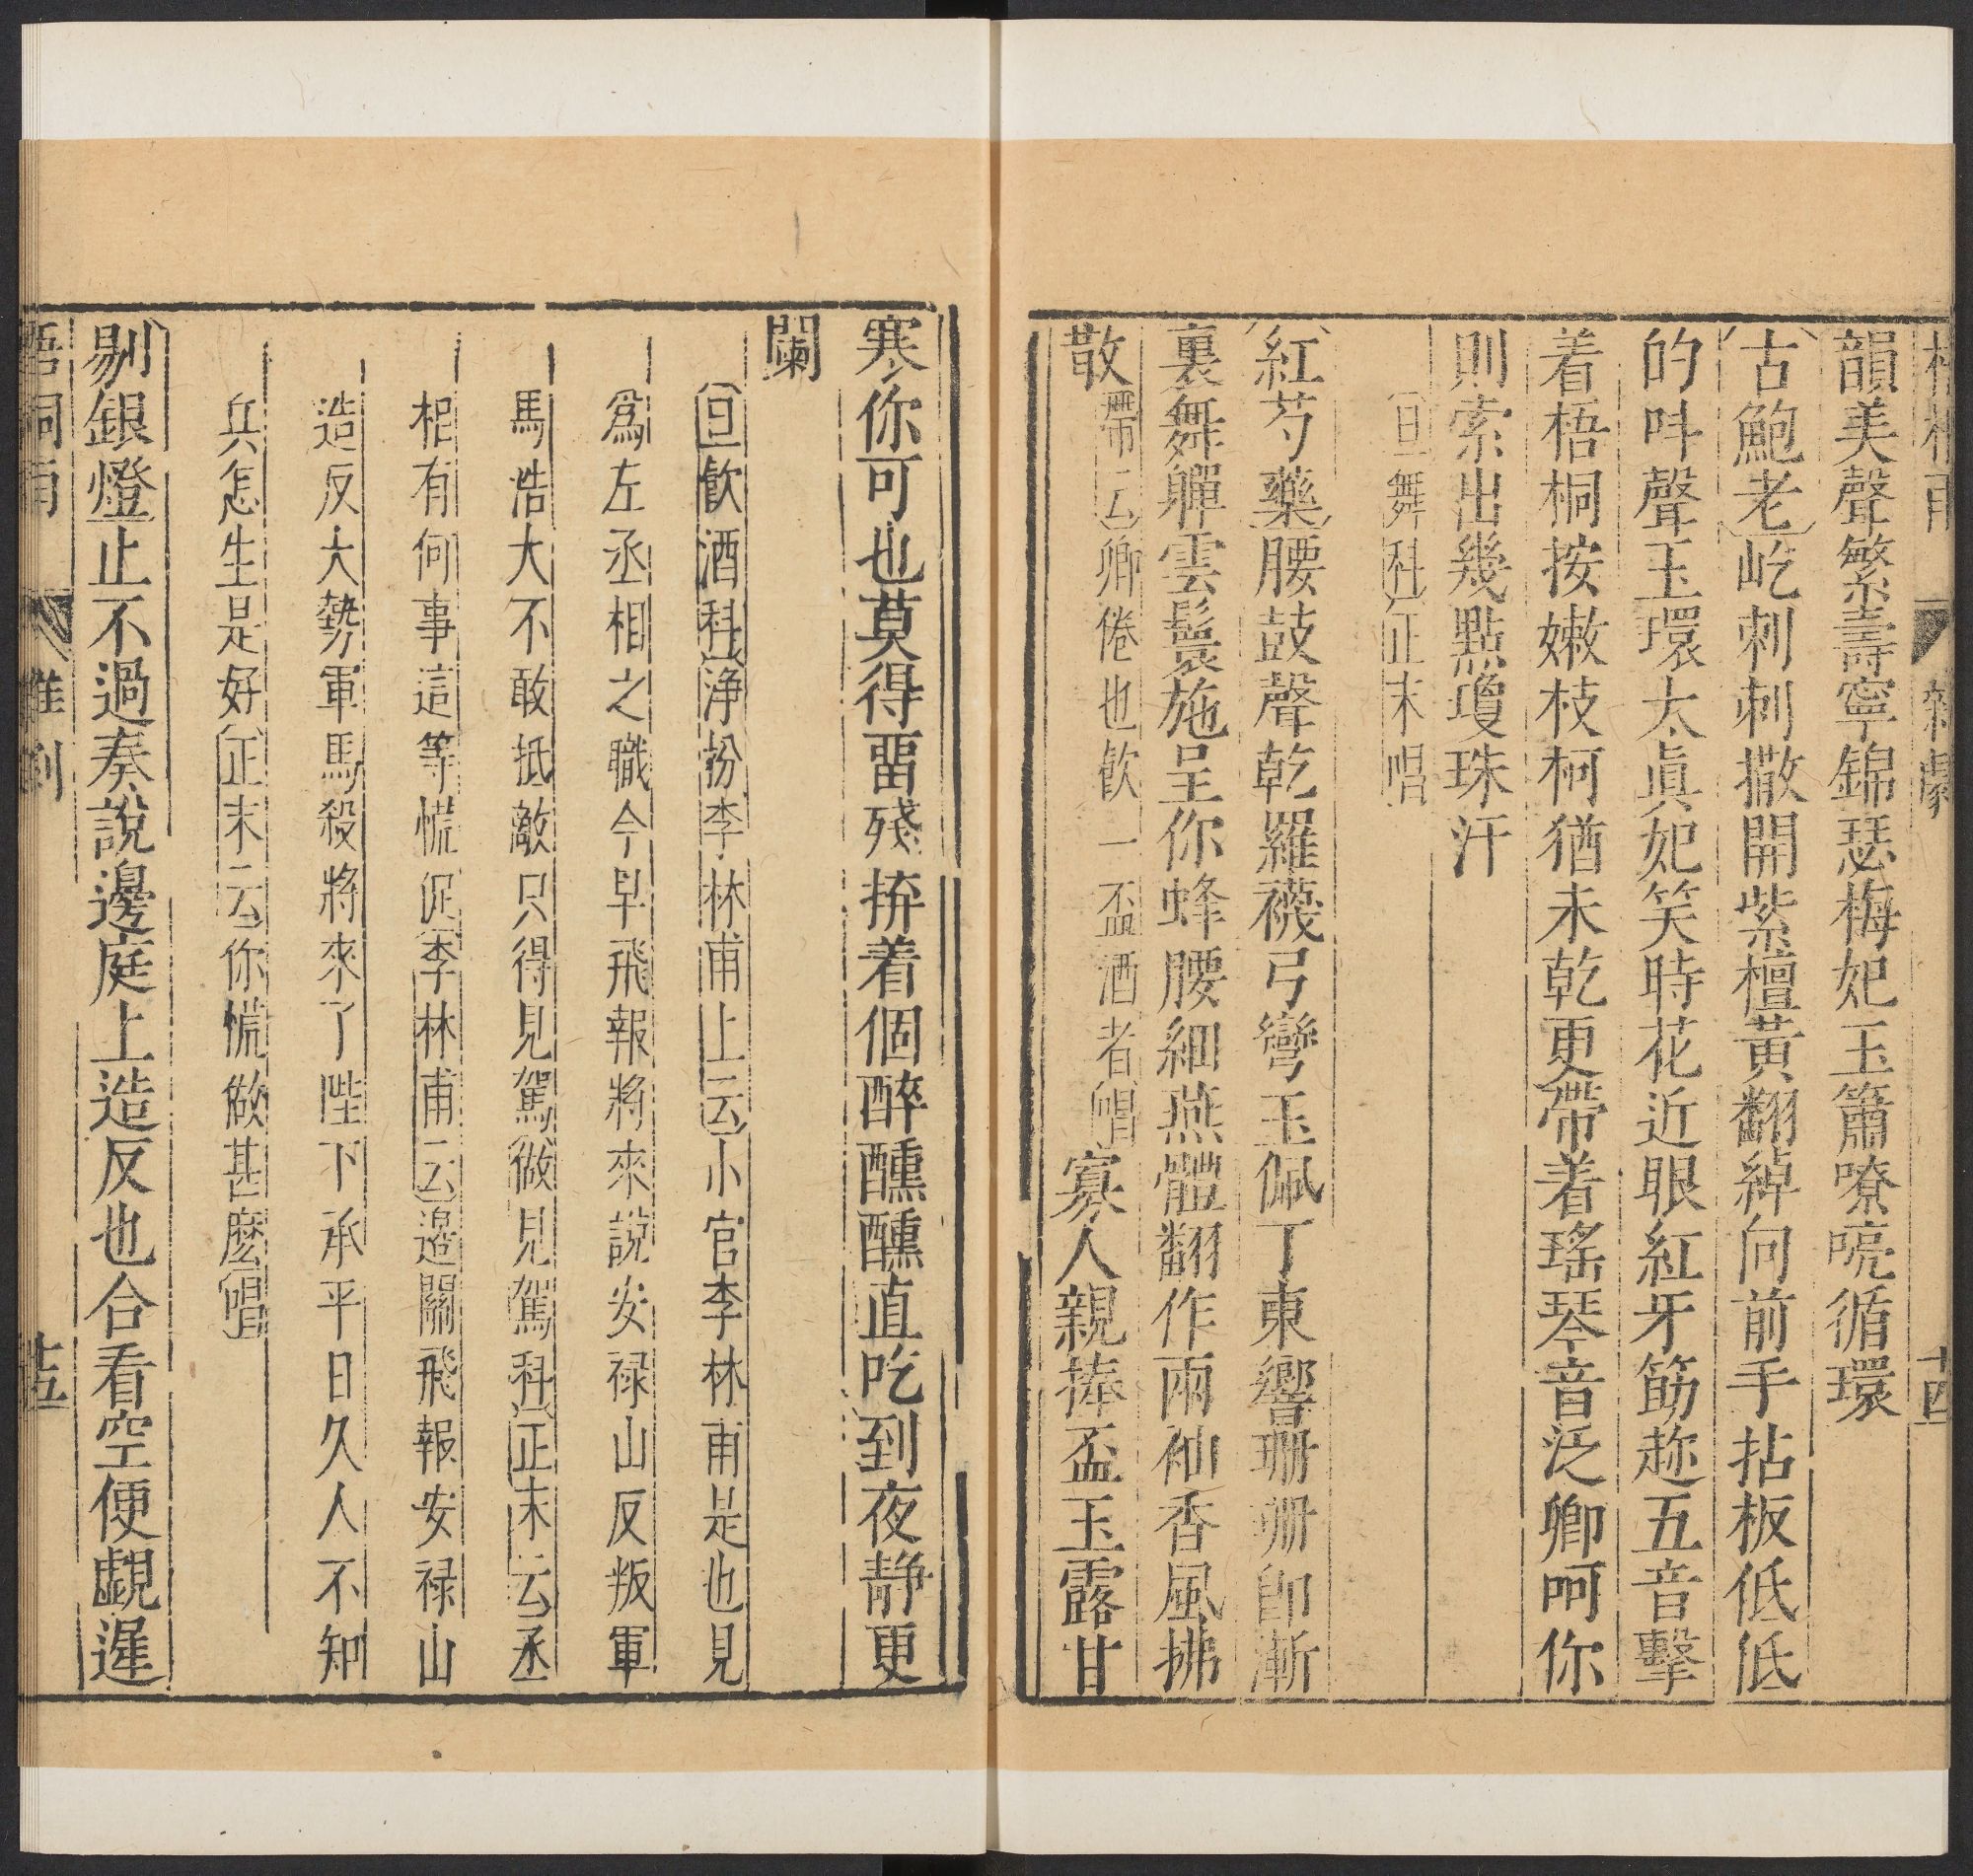 梧桐雨 雜劇 十四
韻美聲繁壽寧錦瑟梅妃玉簫嘹喨循環
古鮑老屹刺刺撒開紫檀黃翻綽向前手拈板低低
的呌聲玉環太眞妃笑時花近眼紅牙筯趂五音擊
着梧桐按嫩枝柯猶未乾更帶着瑤琴音泛卿呵你
則索出幾點瓊珠汗
旦舞科正末唱
紅芍藥腰鼓聲乾羅襪弓彎玉佩丁東響珊珊卽漸
裏舞軃雲鬟施呈你蜂腰細燕體翻作兩袖香風拂
散帶云卿倦也飮一盃酒者唱寡人親捧盃玉露甘
寒你可也莫得畱殘拚着個醉醺醺直吃到夜靜更
闌
旦飮酒科淨扮李林甫上云小官李林甫是也見
爲左丞相之職今早飛報將來說安祿山反叛軍
馬浩大不敢抵敵只得見駕做見駕科正末云丞
相有何事這等慌促李林甫云邉關飛報安祿山
造反大勢軍馬殺將來了陛下承平日久人不知
兵怎生是好正末云你慌做甚麽唱
剔銀燈止不過奏說邊庭上造反也合看空便覷遲
梧桐雨 雜劇 十五